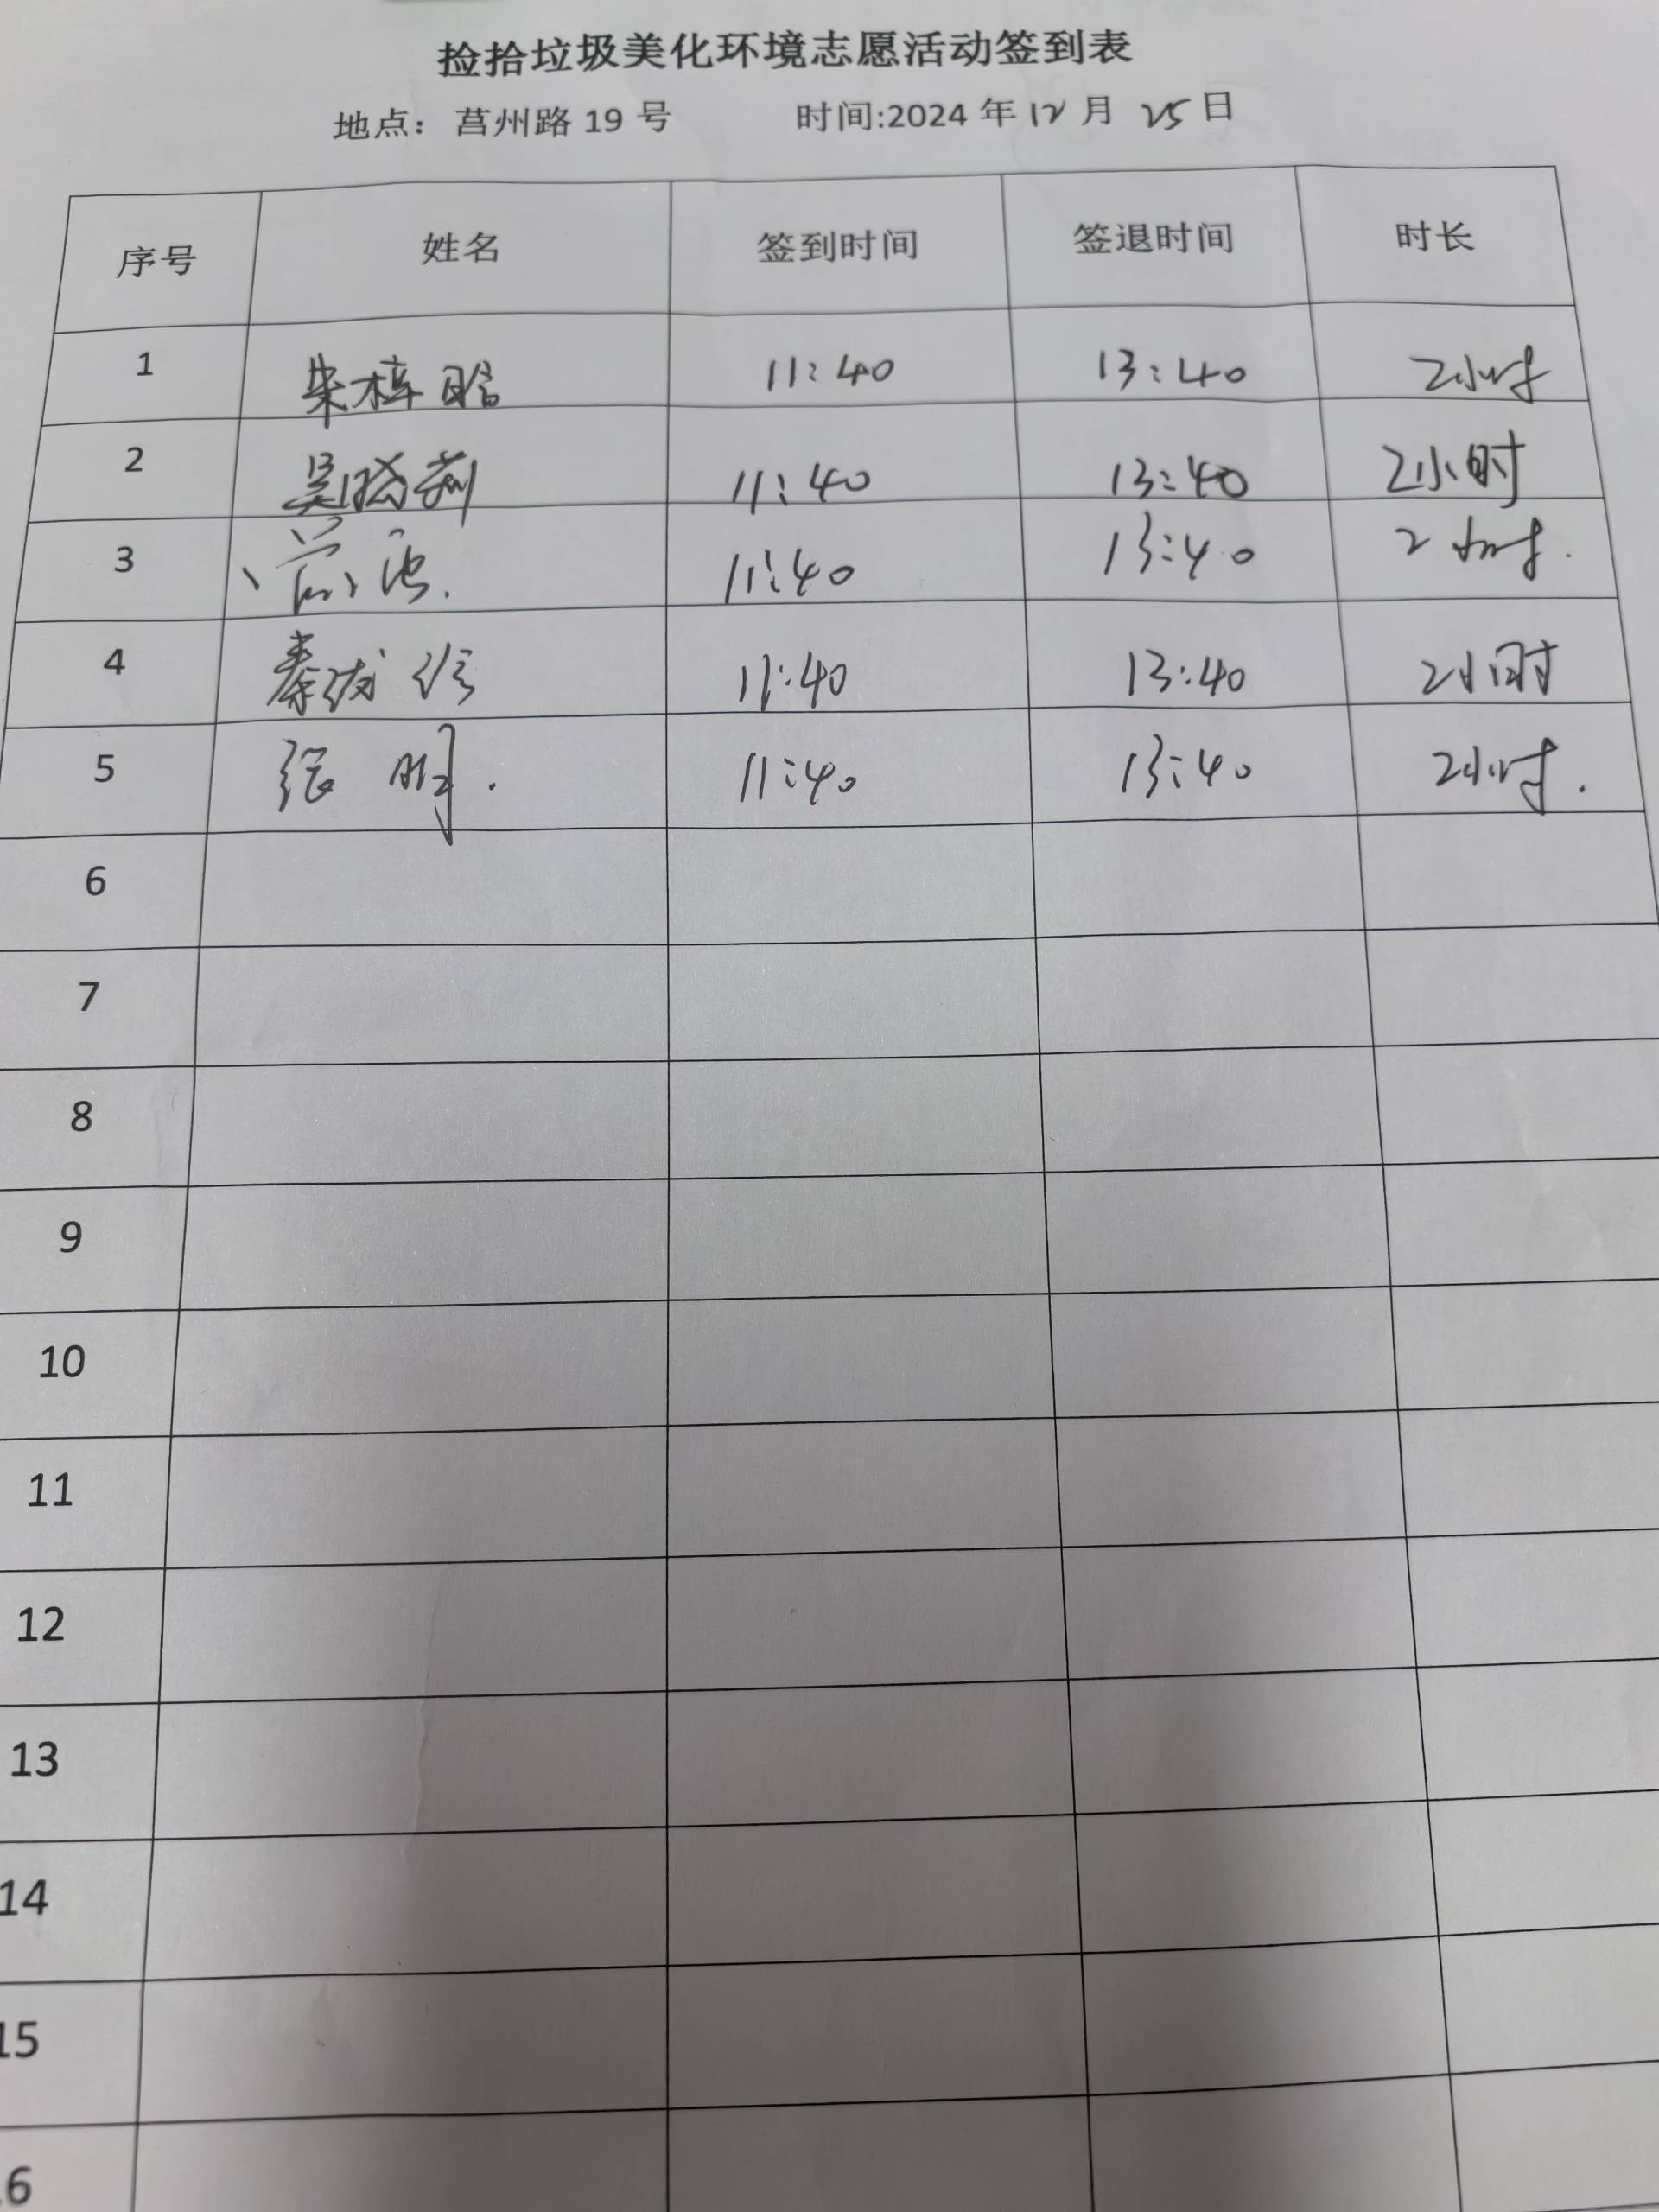 捡拾垃圾美化环境志愿活动签到表
地点：莒州路 19 号 时间:2024 年 12 月 25 日
序号 姓名 签到时间 签退时间 时长
1 朱梓晗 11:40 13:40 2小时
2 吴晓莉 11:40 13:40 2小时
3 11:40 13:40 2小时.
4 秦绒俊 11:40 13:40 2小时
5 张明. 11:40 13:40 2小时.
6
7
8
9
10
11
12
13
14
15
16